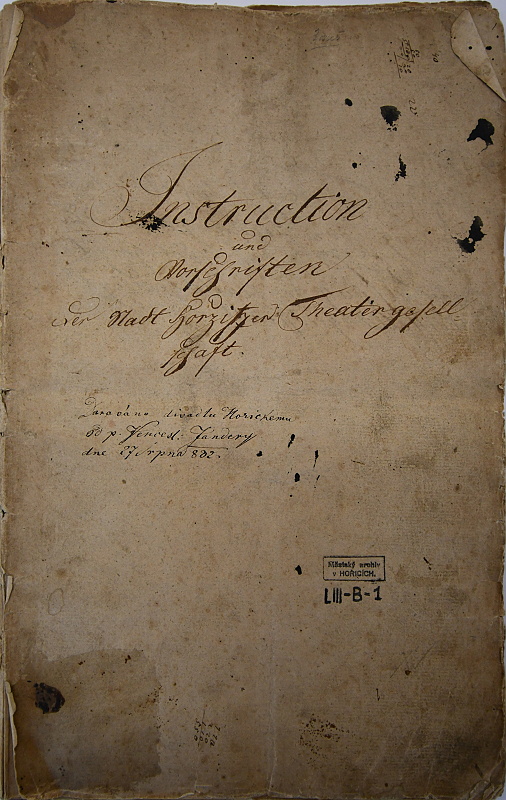 Instruction
und
Vorschriften
der Stadt Horzitzer Theatergesell-
schaft.
Darováno divadlu Hořickému
od p. Vencesl. Jandery
dne 27 srpna 882.
Městský archiv
v HOŘICÍCH.
LIII-B-1